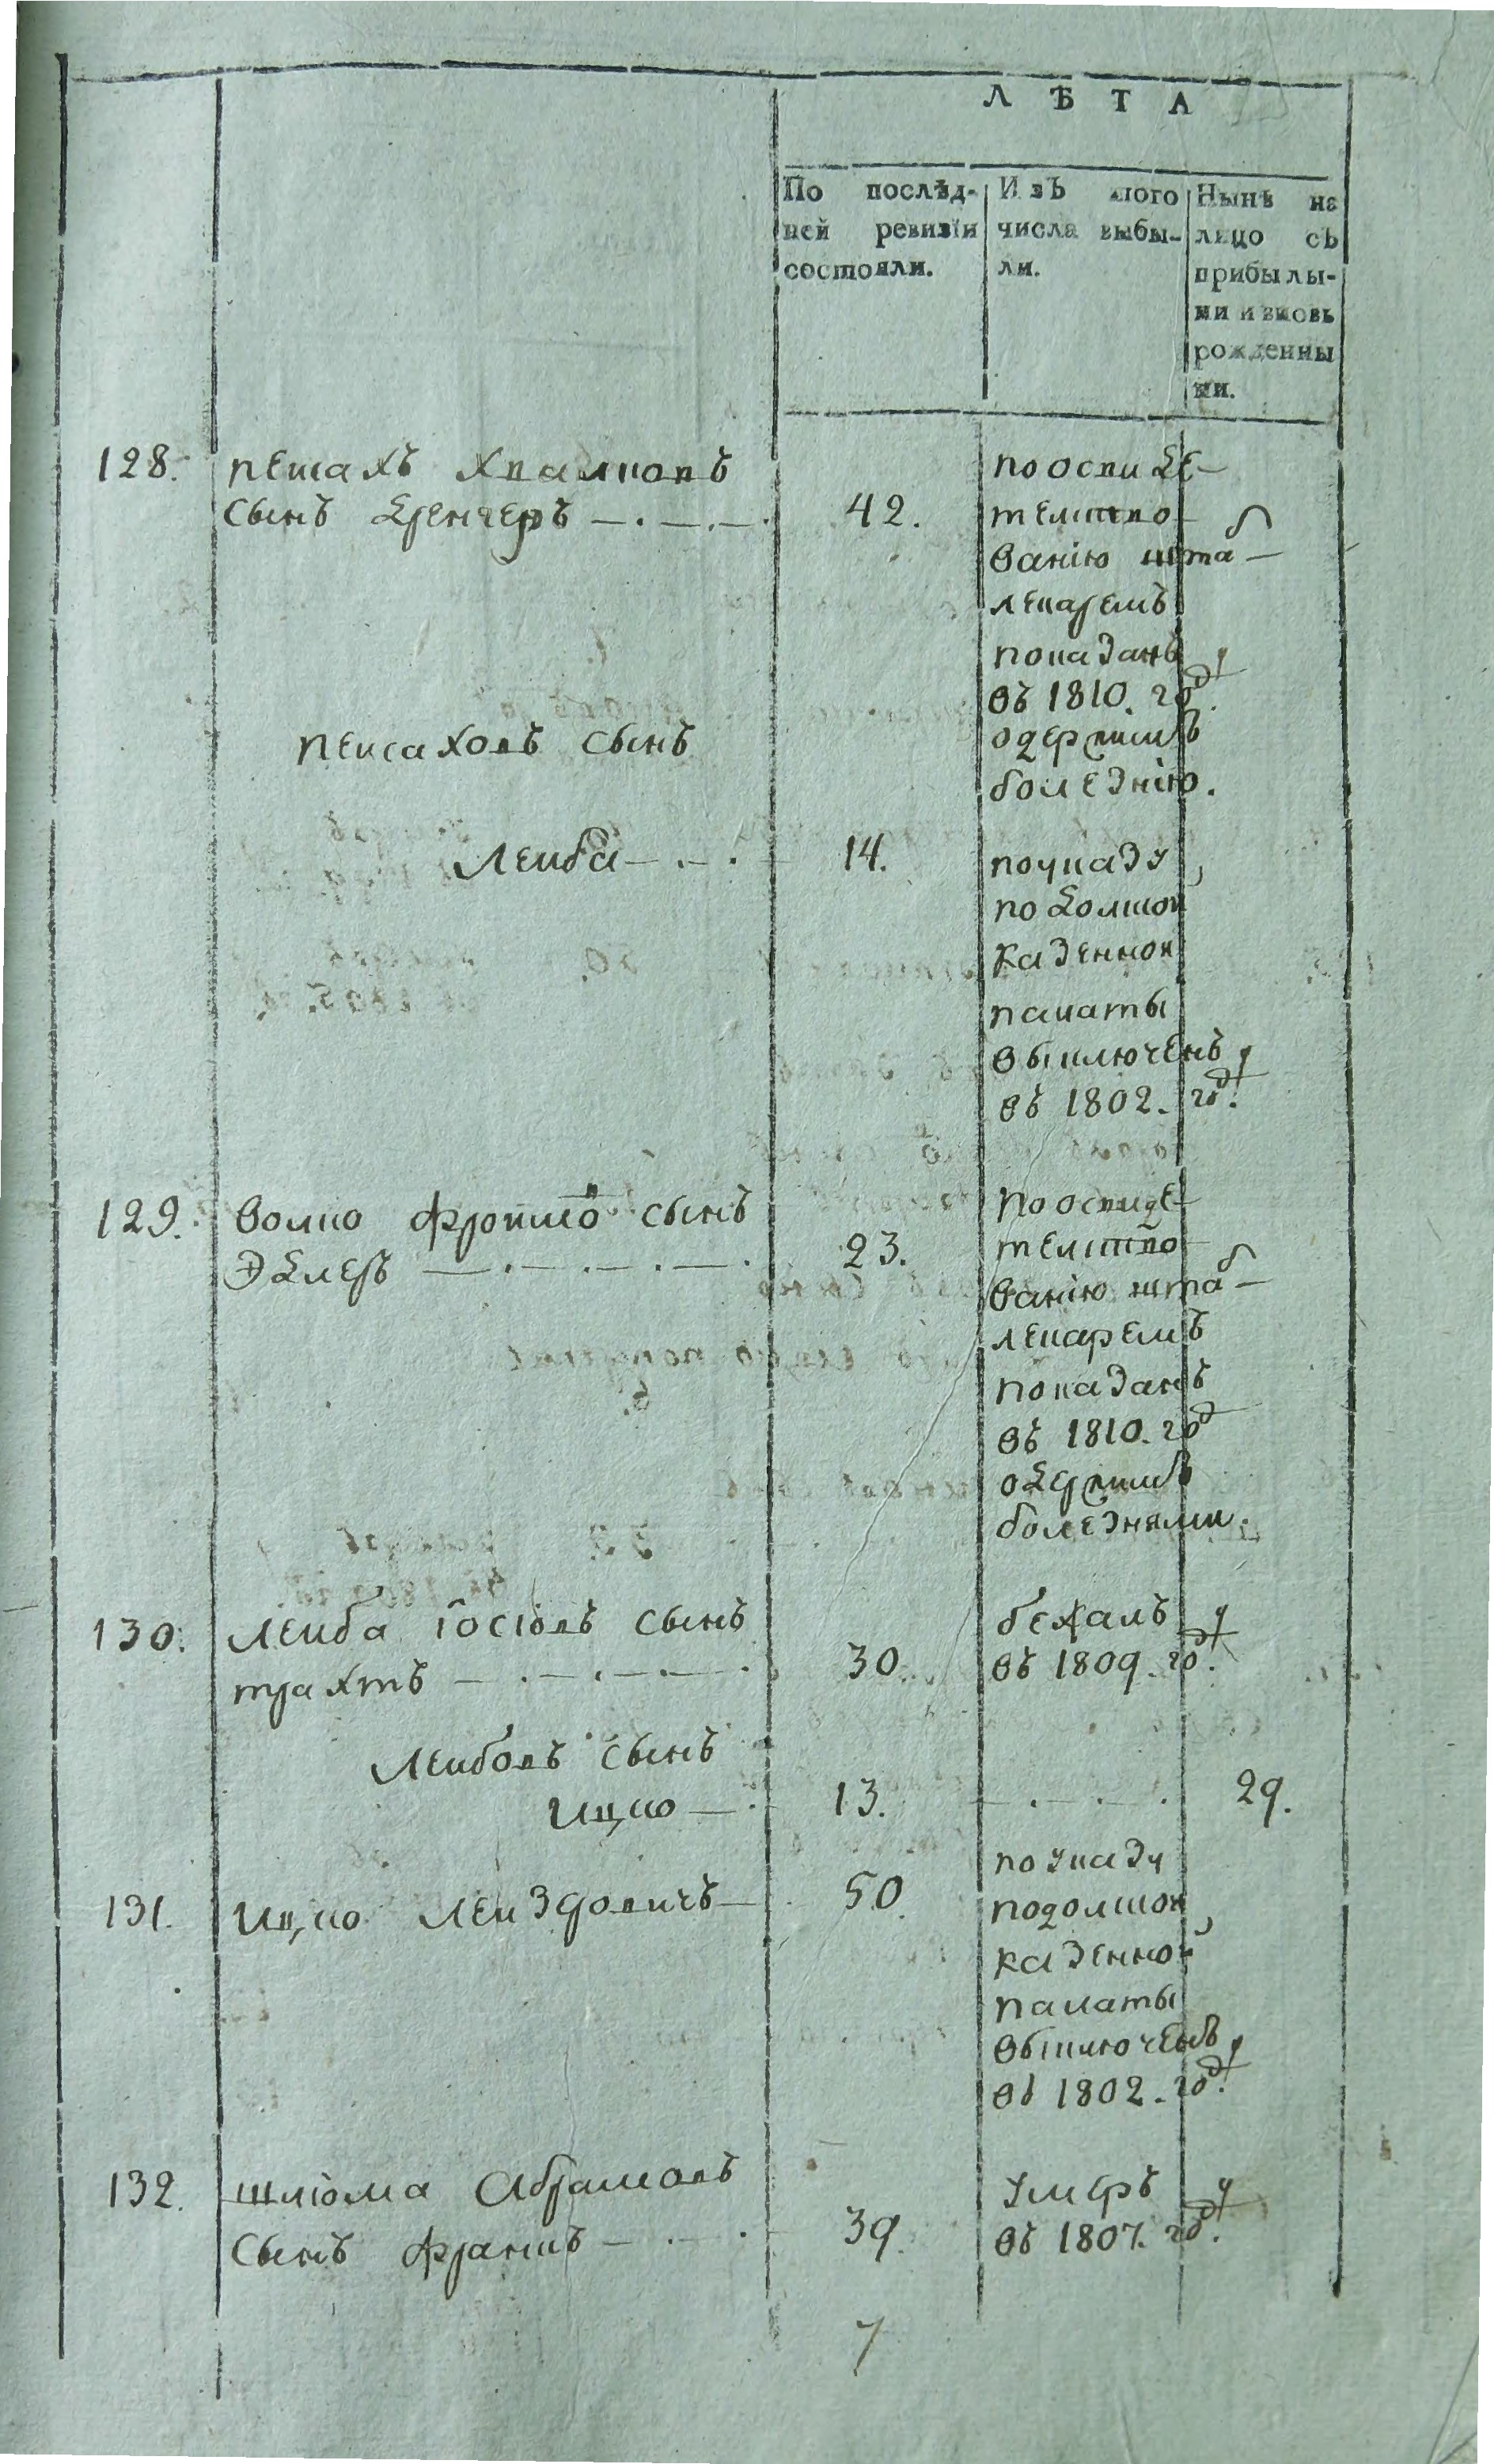 ЛѢТА
По послѣд-
ней ревизіи
состояли.
ИзЪ того
числа выбы-
ли.
Нынѣ на
лицо сЪ
прибылы-
ми и вновь
рожденны
ми.
128. пейсахъ хваликовъ
сынъ дренгеръ 42.
по освиде-
телство-
ванію штаб
лекаремъ
показанъ
въ 1810. году
одержимъ
болезнію.
пейсаховъ сынъ
лейба 14.
поуказу
подолской
казенной
палаты
выключенъ
въ 1802. году.
129. волко фроимо㆑ сынъ
Эдлеръ 23.
по освиде
телство
ванію штаб
лекаремъ
показанъ
въ 1810. год
одержимъ
болезнями.
130. лейба іосіовъ сынъ
трахтъ 30.
бежалъ
въ 1809. году.
лейбовъ сынъ
ицко 13. 29.
131. ицко лейзровичъ 50.
по указу
подолской
казенной
палаты
выключенъ
въ 1802. году.
132. шліома абрамовъ
сынъ франкъ 39.
умеръ
въ 1807. году.
7